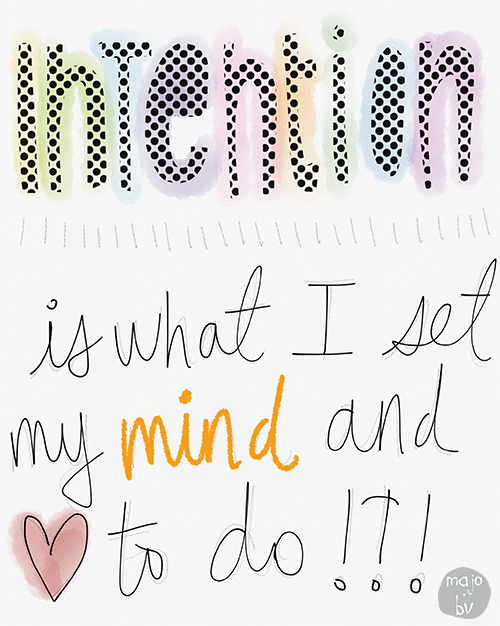 InTention
is what I set
my mind and
to do !T!
majo
bv